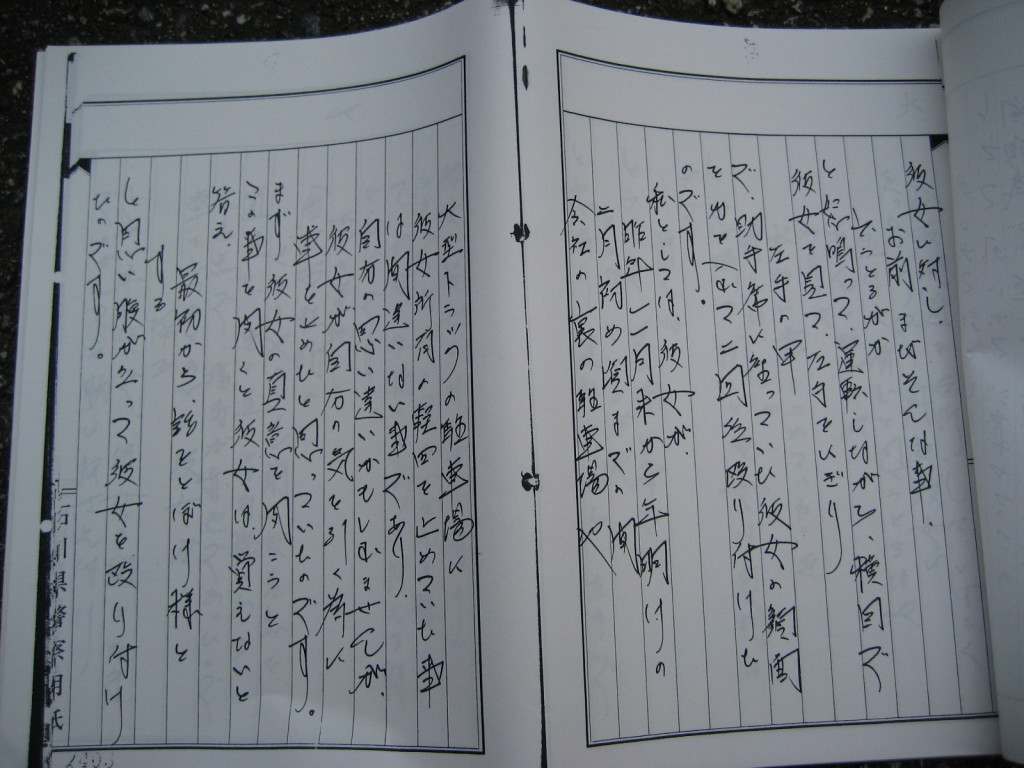 彼女に対し、
お前、まだそんな事、
言っとるがか
と怒鳴って、運転しながら、横目で
彼女を見て、左手をにぎり
左手の甲
で、助手席に座っていた彼女の顔面
を力を込めて二回位殴り付けた
のです。
私としては、彼女が、
昨年一一月末から年明けの
二月初め頃までの間
会社の裏の駐車場や
大型トラックの駐車場に
彼女所有の軽四を止めていた事
は間違いない事であり、
自分の思い違いかもしれませんが、
彼女が自分の気を引く為に
車を止めたと思っていたものです。
まず彼女の真意を聞こうと
この事を聞くと彼女は覚えないと
答え、
最初から、話をとぼけ様と
する
と思い腹が立って彼女を殴り付け
たのです。
石川県警察用紙